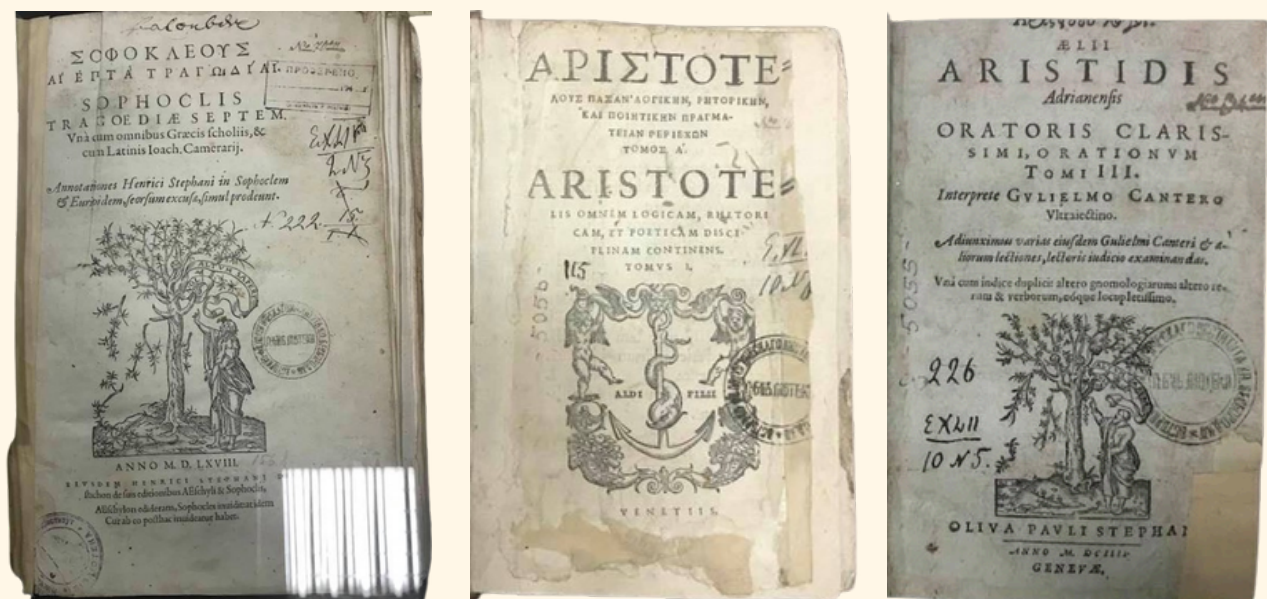 ΣΟΦΟΚΛΕΟΥΣ
ΑΙ ΕΠΤΑ ΤΡΑΓΩΔΙΑΙ.
SOPHOCLIS
TRAGOEDIÆ SEPTEM.
Vnà cum omnibus Græcis scholiis, &
cum Latinis Ioach. Camerarij.
Annotationes Henrici Stephani in Sophoclem
& Euripidem, seorsum excusæ, simul prodeunt.
222.
15.
ANNO M. D. LXVIII.
HENRICI STEPHANI
stichon de suis editionibus Æschyli & Sophoclis,
Æschylon edideram, Sophocles inuidit at idem
Cur ab eo posthac inuideatur habet.
ΑΡΙΣΤΟΤΕ=
ΛΟΥΣ ΠΑΣΑΝ ΛΟΓΙΚΗΝ, ΡΗΤΟΡΙΚΗΝ,
ΚΑΙ ΠΟΙΗΤΙΚΗΝ ΠΡΑΓΜΑ-
ΤΕΙΑΝ ΠΕΡΙΕΧΩΝ
ΤΟΜΟΣ Α.
ARISTOTE=
LIS OMNEM LOGICAM, RHETORI
CAM, ET POETICAM DISCI
PLINAM CONTINENS.
TOMVS I.
115
5056
ALDI FILII
VENETIIS.
ÆLII
ARISTIDIS
Adrianensis
ORATORIS CLARIS-
SIMI, ORATIONVM
TOMI III.
Interprete GVLIELMO CANTERO
Vltraiectino.
Adiunximus varias eiusdem Gulielmi Canteri & a-
liorum lectiones, lectoris iudicio examinandas.
Vnà cum indice duplici: altero gnomologiarum: altero re-
rum & verborum, eóque locupletissimo.
5055
226
EXLII
10 N 5.
OLIVA PAVLI STEPHA
ANNO M. DCIIII.
GENEVÆ.